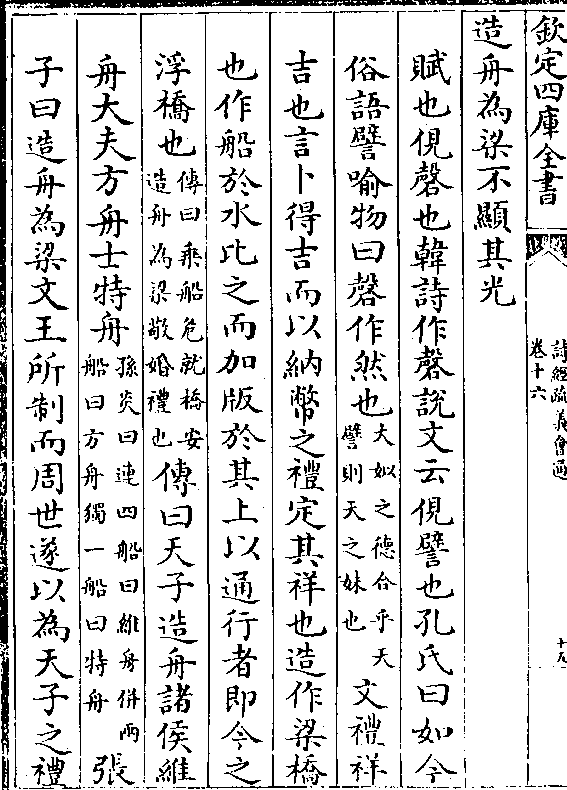 欽定四庫全書
詩經疏義會通
卷十六
十九
造舟為梁不顯其光
賦也俔磬也韓詩作磬說文云俔譬也孔氏曰如今
俗語譬喻物曰磬作然也大姒之德合乎天
譬則天之妹也文禮祥
吉也言卜得吉而以納幣之禮定其祥也造作梁橋
也作船於水比之而加版於其上以通行者即今之
浮橋也傳曰乘船危就橋安
造舟為梁敬婚禮也傳曰天子造舟諸侯維
舟大夫方舟士特舟孫炎曰連四船曰維舟併兩
船曰方舟獨一船曰特舟張
子曰造舟為梁文王所制而周世遂以為天子之禮